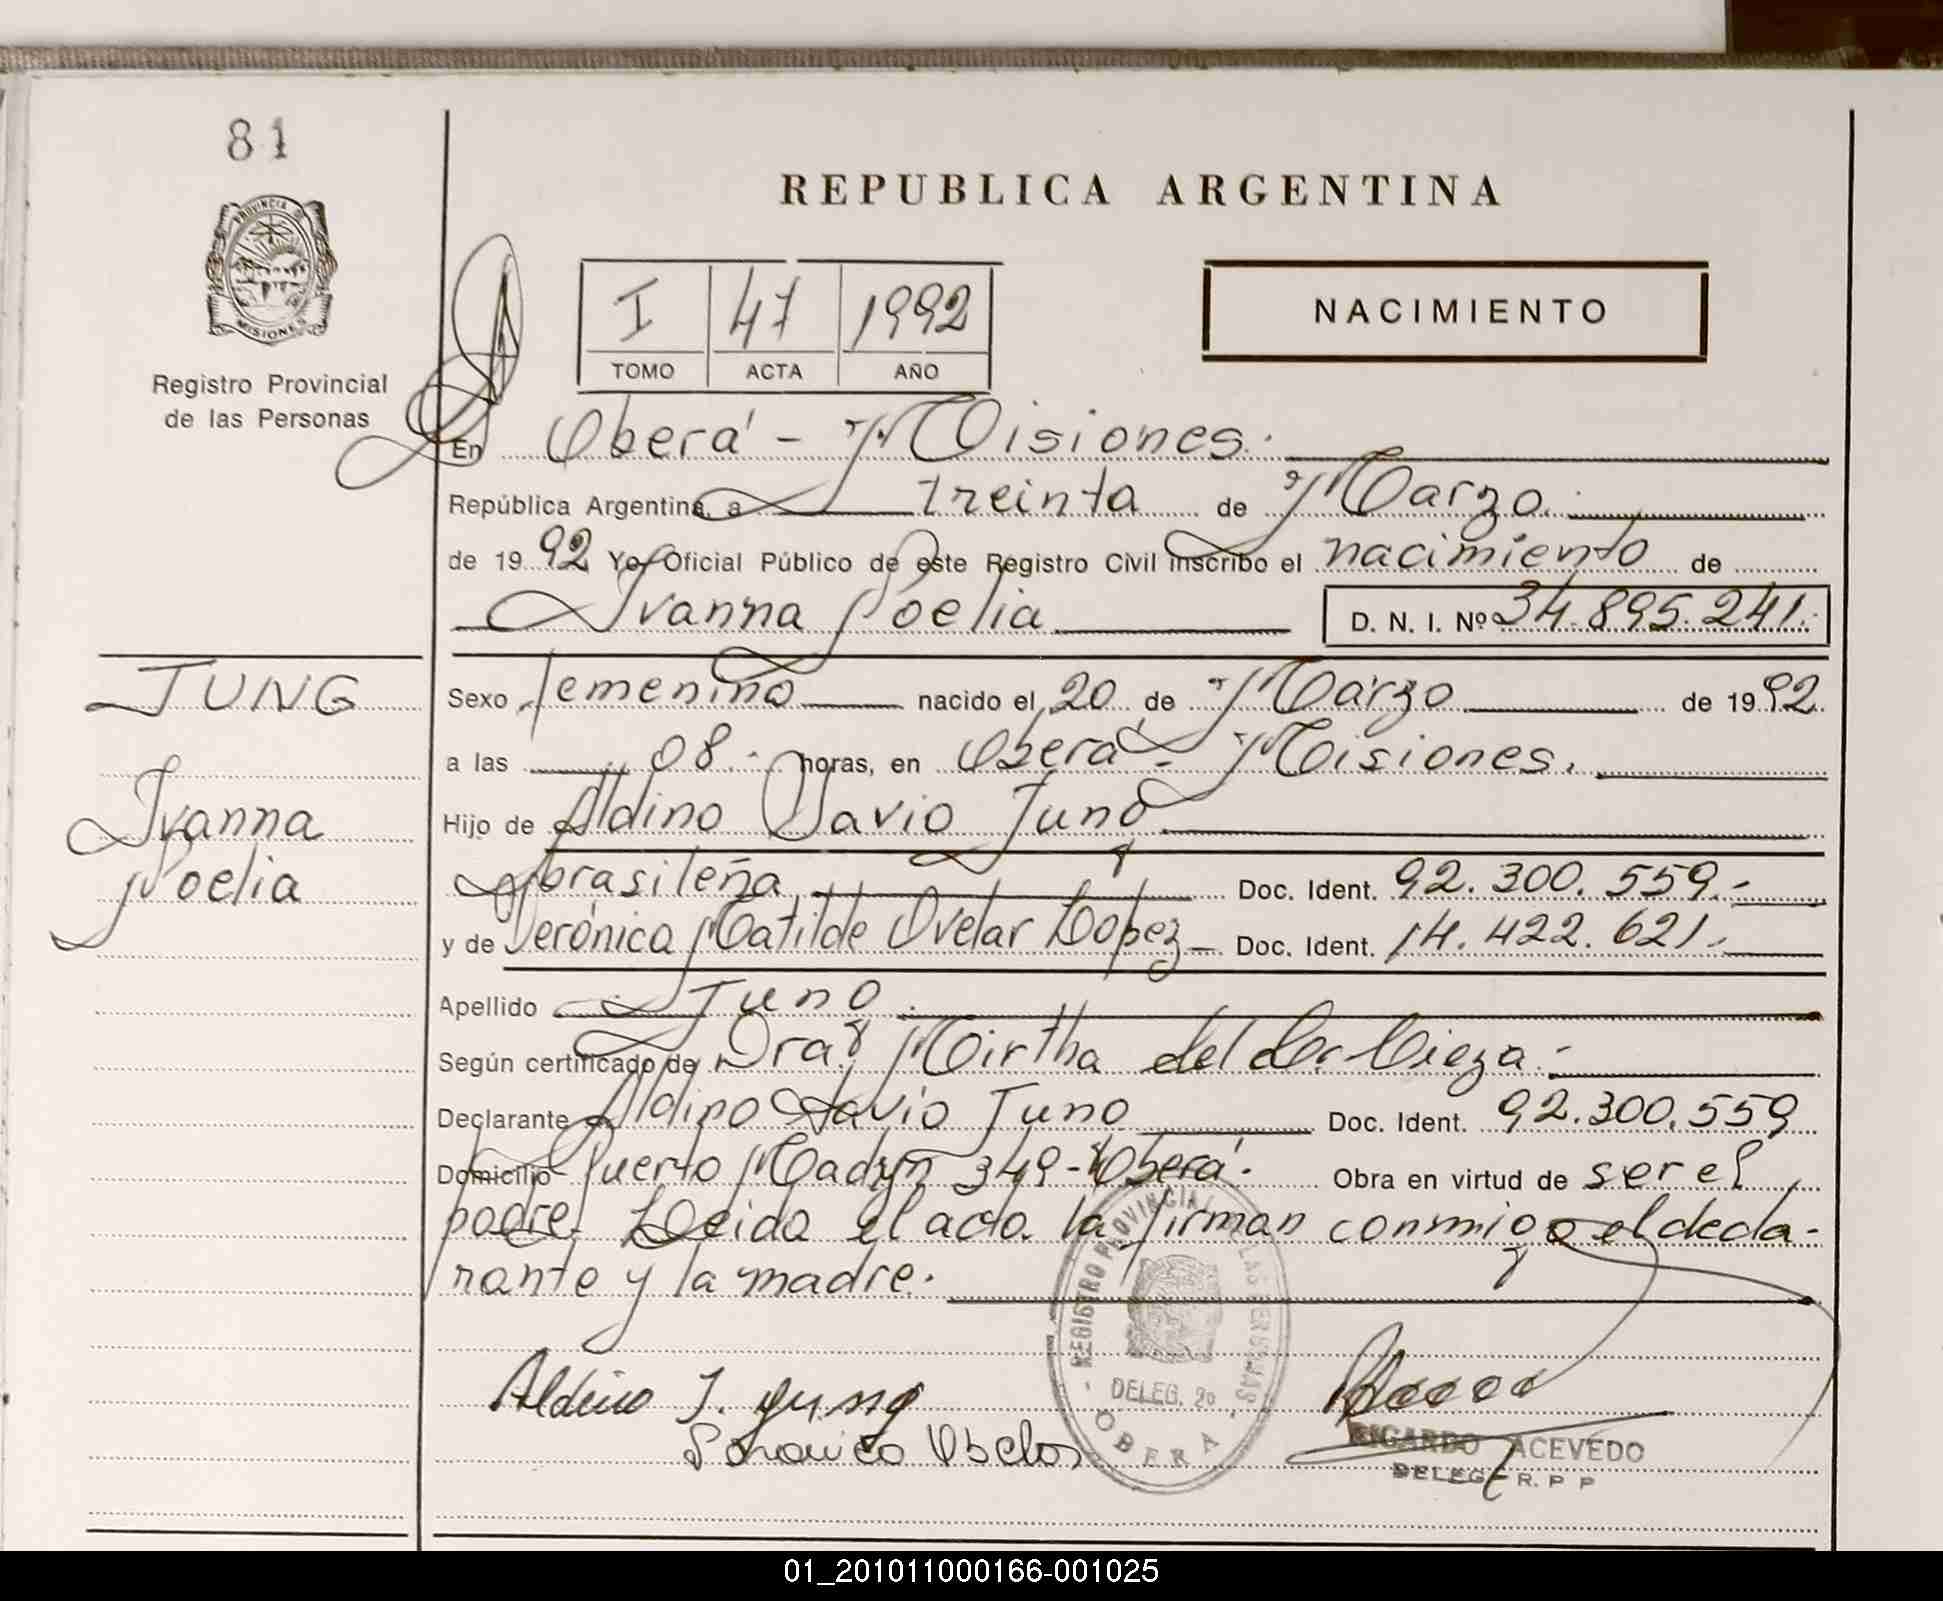 81
REPUBLICA ARGENTINA
PROVINCIA D
MISIONES
Registro Provincial
de las Personas
I 47 1992
TOMO ACTA AÑO
NACIMIENTO
En Oberá - Misiones.
República Argentina, a treinta de Marzo.
de 1992 Yo Oficial Público de este Registro Civil inscribo el nacimiento de
Ivanna Noelia D. N. I. Nº 34.895.241.
JUNG
Ivanna
Noelia
Sexo femenino nacido el 20 de Marzo de 1992.
a las 08.- horas, en Oberá - Misiones.
Hijo de Aldino Flavio Jung
brasileña Doc. Ident. 92.300.559.-
y de Verónica Matilde Ovelar López - Doc. Ident. 14.422.621.
Apellido Jung.
Según certificado de Dra. Mirtha del C. Cieza.-
Declarante Aldino Flavio Jung Doc. Ident. 92.300.559
Domicilio Puerto Madryn 349 - Oberá. Obra en virtud de ser el
padre. Leida el acta la firman conmigo el decla-
rante y la madre.
REGISTRO PROVINCIAL LAS PERSONAS
DELEG. 2º
OBERA
Aldino J. Jung
RICARDO ACEVEDO
DELEG. R. P P
01_201011000166-001025